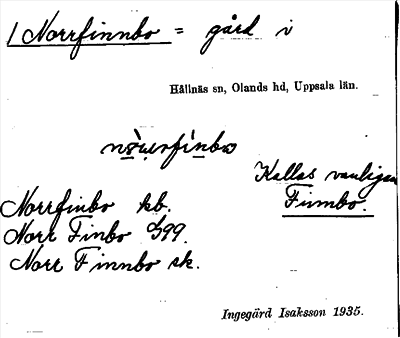 1 Norrfinnbo = gård i
Hållnäs sn, Olands hd, Uppsala län.
Kallas vanligen
Finnbo.
Norrfinbo kb.
Norr Finbo
Norr Finnbo sk.
Ingegärd Isaksson 1935.